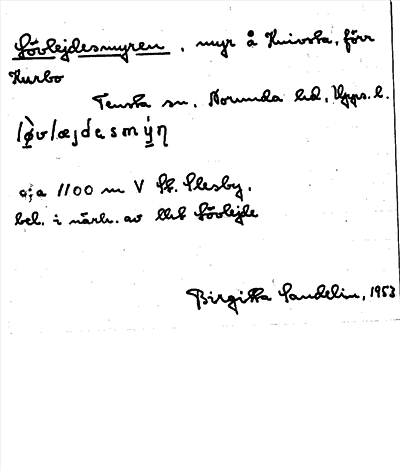 Lövlejdesmyren, myr å Knivsta, förr
Kurbo
Tensta sn, Norunda hd, Upps. l.
løvlæjdesmýn
c:a 1100 m V St. Ilesby.
bel. i närh. av Lövlejde
Birgitta Sandelin, 1953